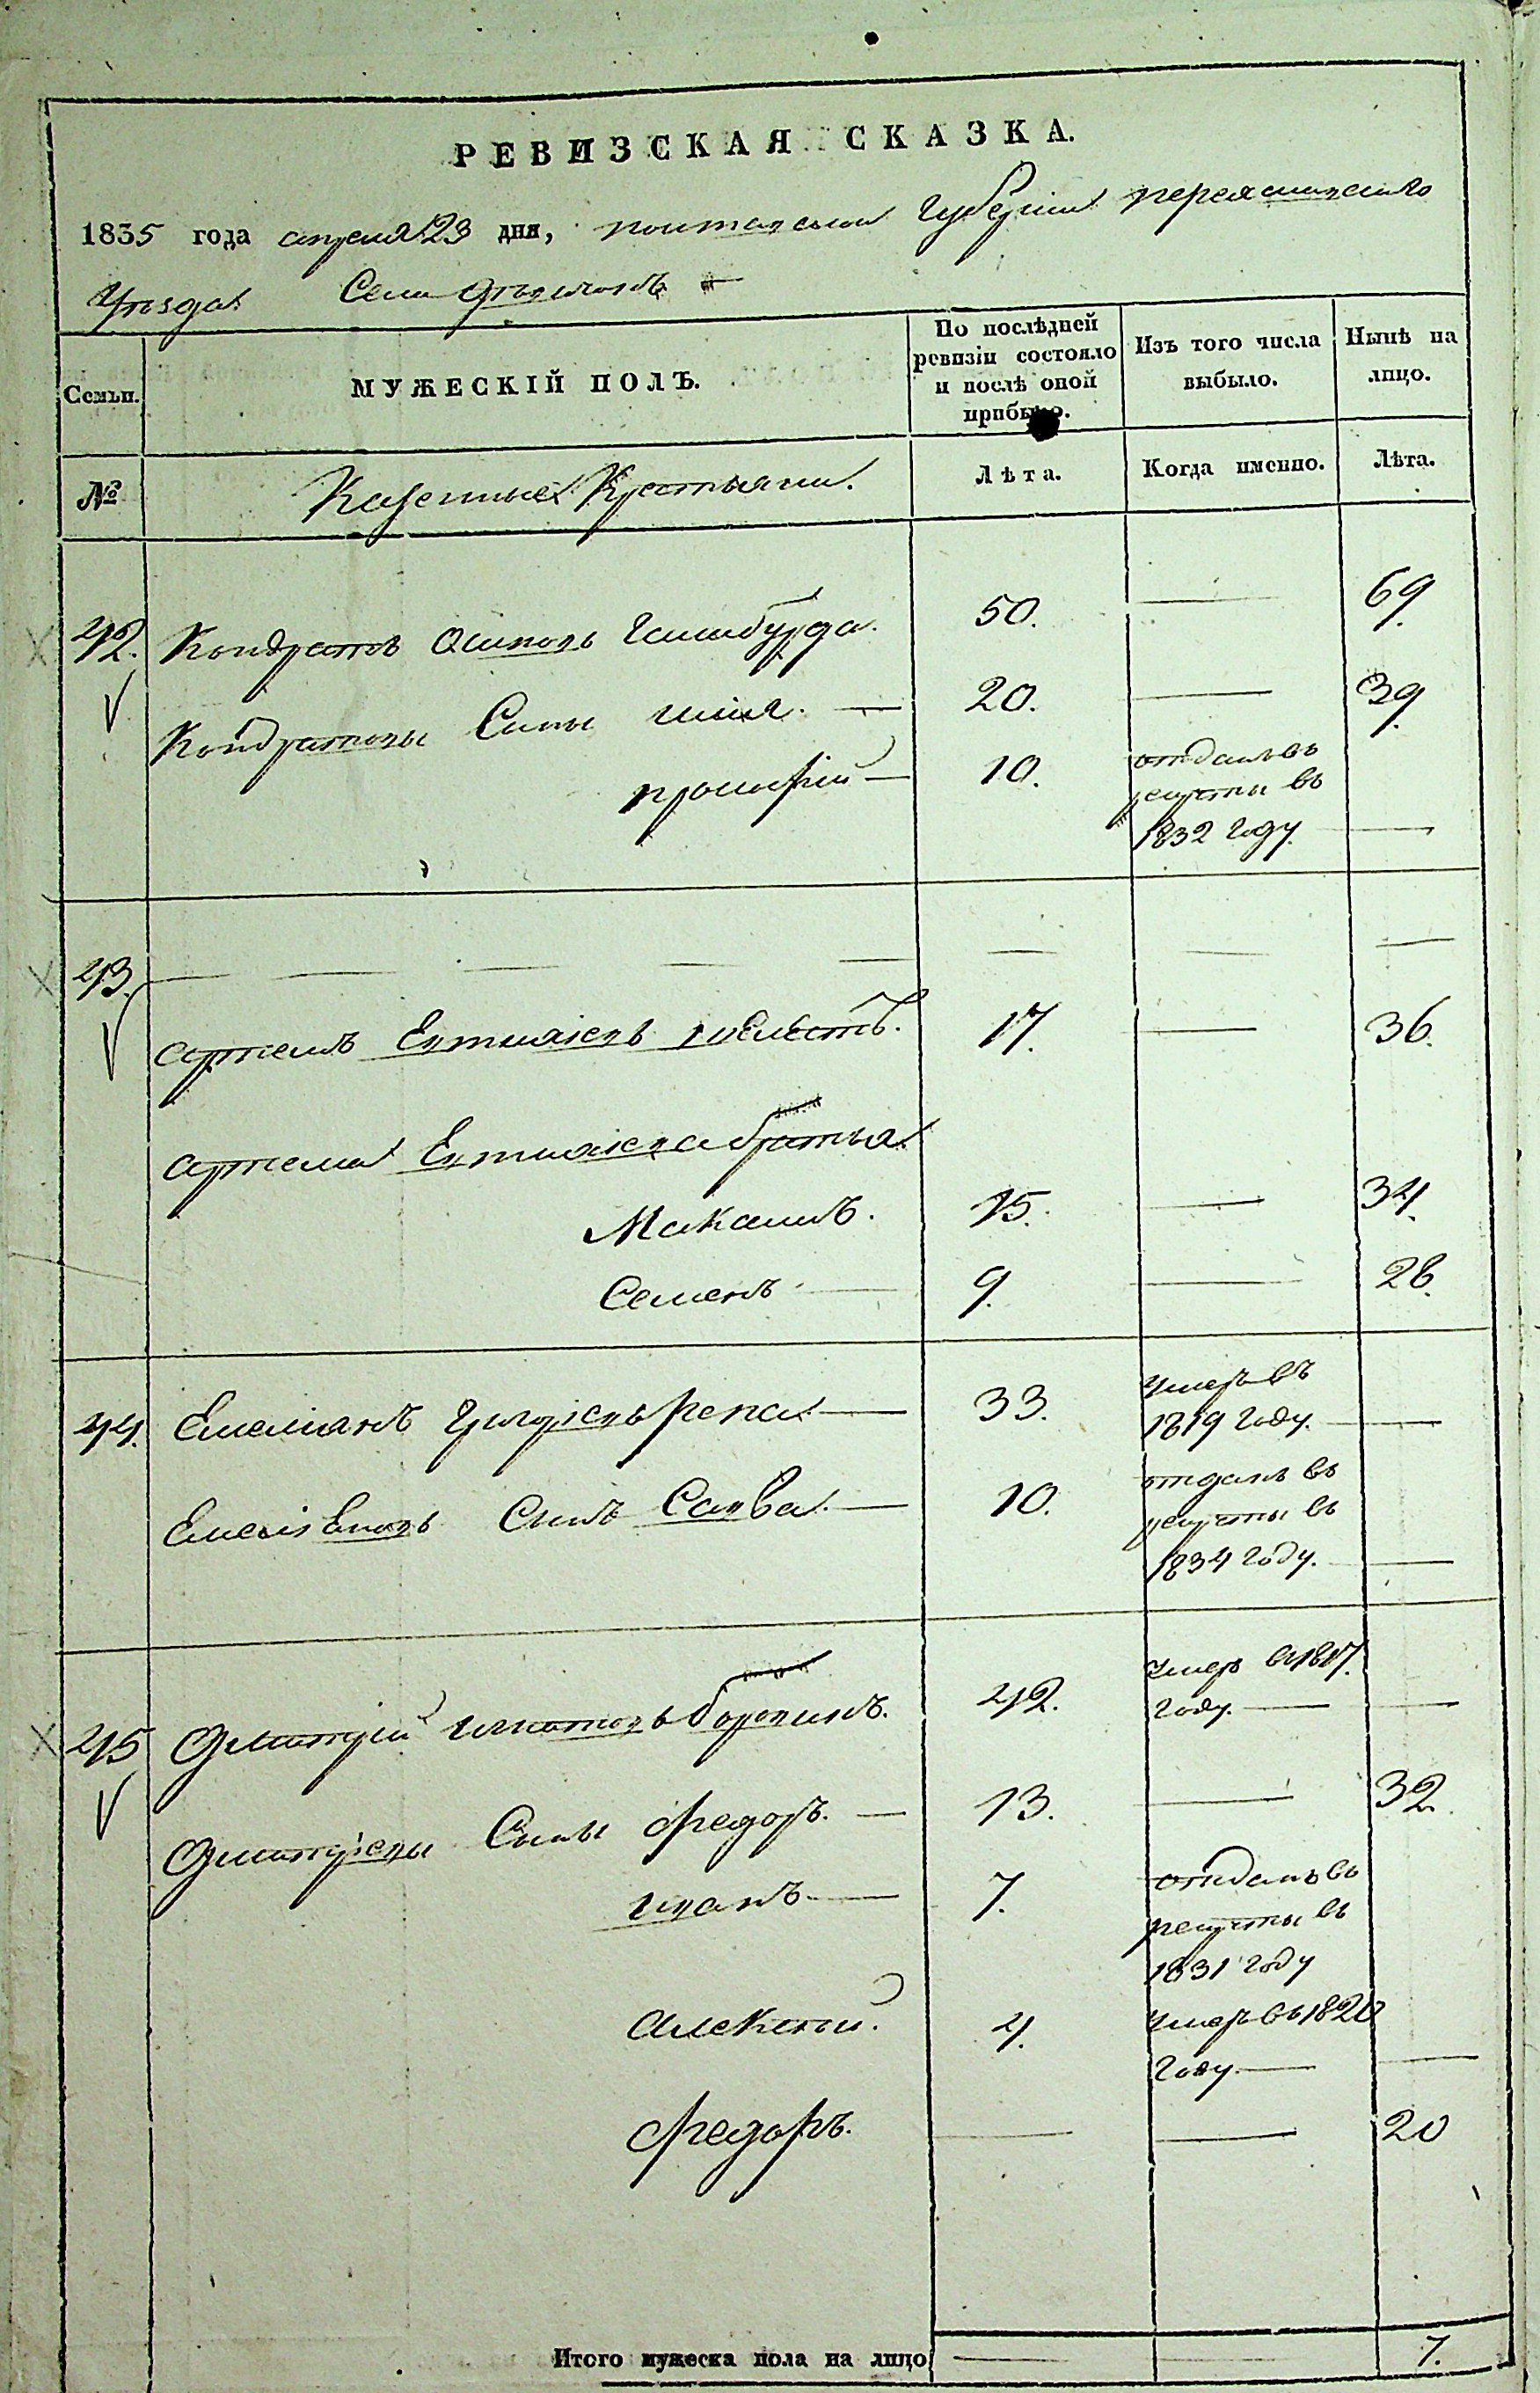 РЕВИЗСКАЯ СКАЗКА.
1835 года апреля 23 дня, полтавской Губернии переяславскаго
Уезда Села
Семьи. МУЖЕСКІЙ ПОЛЪ. По послѣдней ревизіи состояло и послѣ оной прибыло. Изъ того числа выбыло. Нынѣ на лицо.
№ Казенные Крестьяни. Лѣта. Когда именно. Лѣта.
42. Кондратъ Осиповъ 50. — 69.
Кондратовы Сыны илія. — 20. — 39.
прокофій — 10. отданъ въ
рекруты въ
1832 году. —
43. — — — — — — — —
артемъ Евтихіевъ 17. — 36.
артема Евтихіева братья
Макаимъ. 15. — 34.
Семенъ — 9. — 28.
44. Емеліанъ Григоріевъ репа — 33. умеръ въ
1819 году. —
Емеліяновъ Сынъ Савва. — 10. отданъ въ
рекруты въ
1834 году. —
45 Дмитрій игнатовъ Воронинъ. 42. умеръ въ 1817.
году. — —
Дмитріевы Сыны Федоръ. — 13. — 32.
иванъ — 7. отданъ въ
рекруты въ
1831 году
алексей. 4. умеръ въ 1820
году. — —
Федоръ. — — 20
Итого мужеска пола на лицо — — 7.